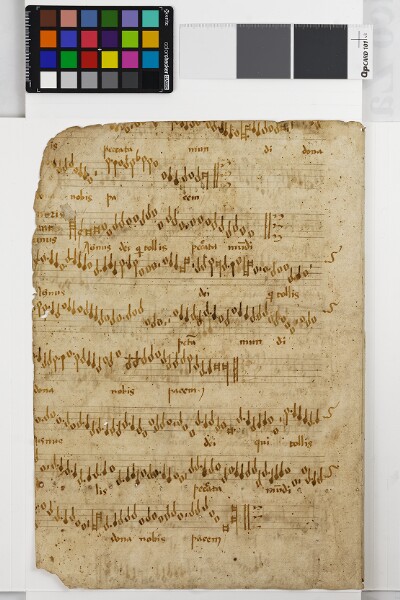 peccata mun di dona
nobis pa cem
Agnus dei q tollis peccata mūdi
Agnus dei q tollis
pctā mun di
dona nobis pacem
agnus dei qui tollis
lis peccata mūdi
dona nobis pacem